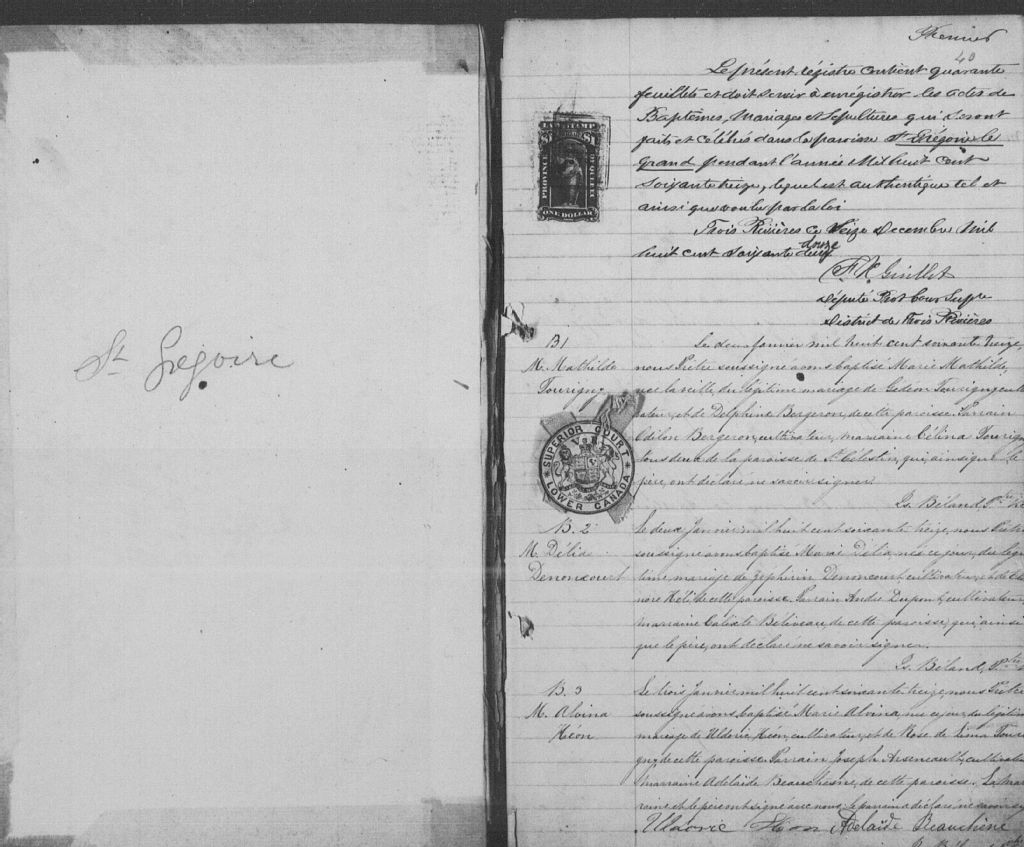 St Grégoire
Premier
40
Le présent régistre contient quarante
feuillets et doit servir à enrégistrer les actes de
Baptêmes, Mariages et Sépultures qui seront
faits et célébrés dans la paroisse St Grégoire le
grand pendant l'année Mil huit cent
Soixante treize, lequel est authentique tel et
ainsi que voulu par la loi
Trois Rivières ce Seize Decembre Mil
huit cent soixante douze
F. H. Guillet
Député Prot Cour Supre
District de Trois Rivières
LAW STAMP
$1 $1
PROVINCE
OF QUEBEC
ONE DOLLAR
SUPERIOR COURT
V R
LOWER CANADA
B 1
M. Mathilde
Tourigny
Le deux Janvier mil huit cent soixante treize,
nous Prêtre soussigné avons baptisé Marie Mathilde,
née la veille, du légitime mariage de Gédéon Tourigny, culti
vateur, et de Delphine Bergeron, de cette paroisse. Parrain
Odilon Bergeron, cultivateur, marraine Célina Tourigny
tous deux de la paroisse de St Célestin, qui, ainsi que le
père, ont déclaré ne savoir signer.
Ls. Béland, Ptre
B. 2
M. Délia
Denoncourt
Le deux Janvier mil huit cent soixante treize, nous Prêtre
soussigné avons baptisé Marie Délia, née ce jour, du légi
time mariage de Zéphirin Denoncourt, cultivateur, et de
nore Hélie de cette paroisse. Parrain André Dupont, cultivateur
marraine Calixte Béliveau, de cette paroisse, qui, ainsi
que le père, ont déclaré ne savoir signer.
Ls. Béland, Ptre
B. 3
M. Alvina
Héon
Le trois Janvier mil huit cent soixante treize, nous Prêtre
soussigné avons baptisé Marie Alvina, née ce jour, du légitime
mariage de Uldoric Héon, cultivateur, et de Rose de Lima Touri
gny de cette paroisse. Parrain Joseph Arseneault, cultivateur
marraine Adelaïde Beauchesne, de cette paroisse. La mar
raine et le père ont signé avec nous, le parrain a déclaré ne savoir
Uldoric Héon Adelaïde Beauchêne